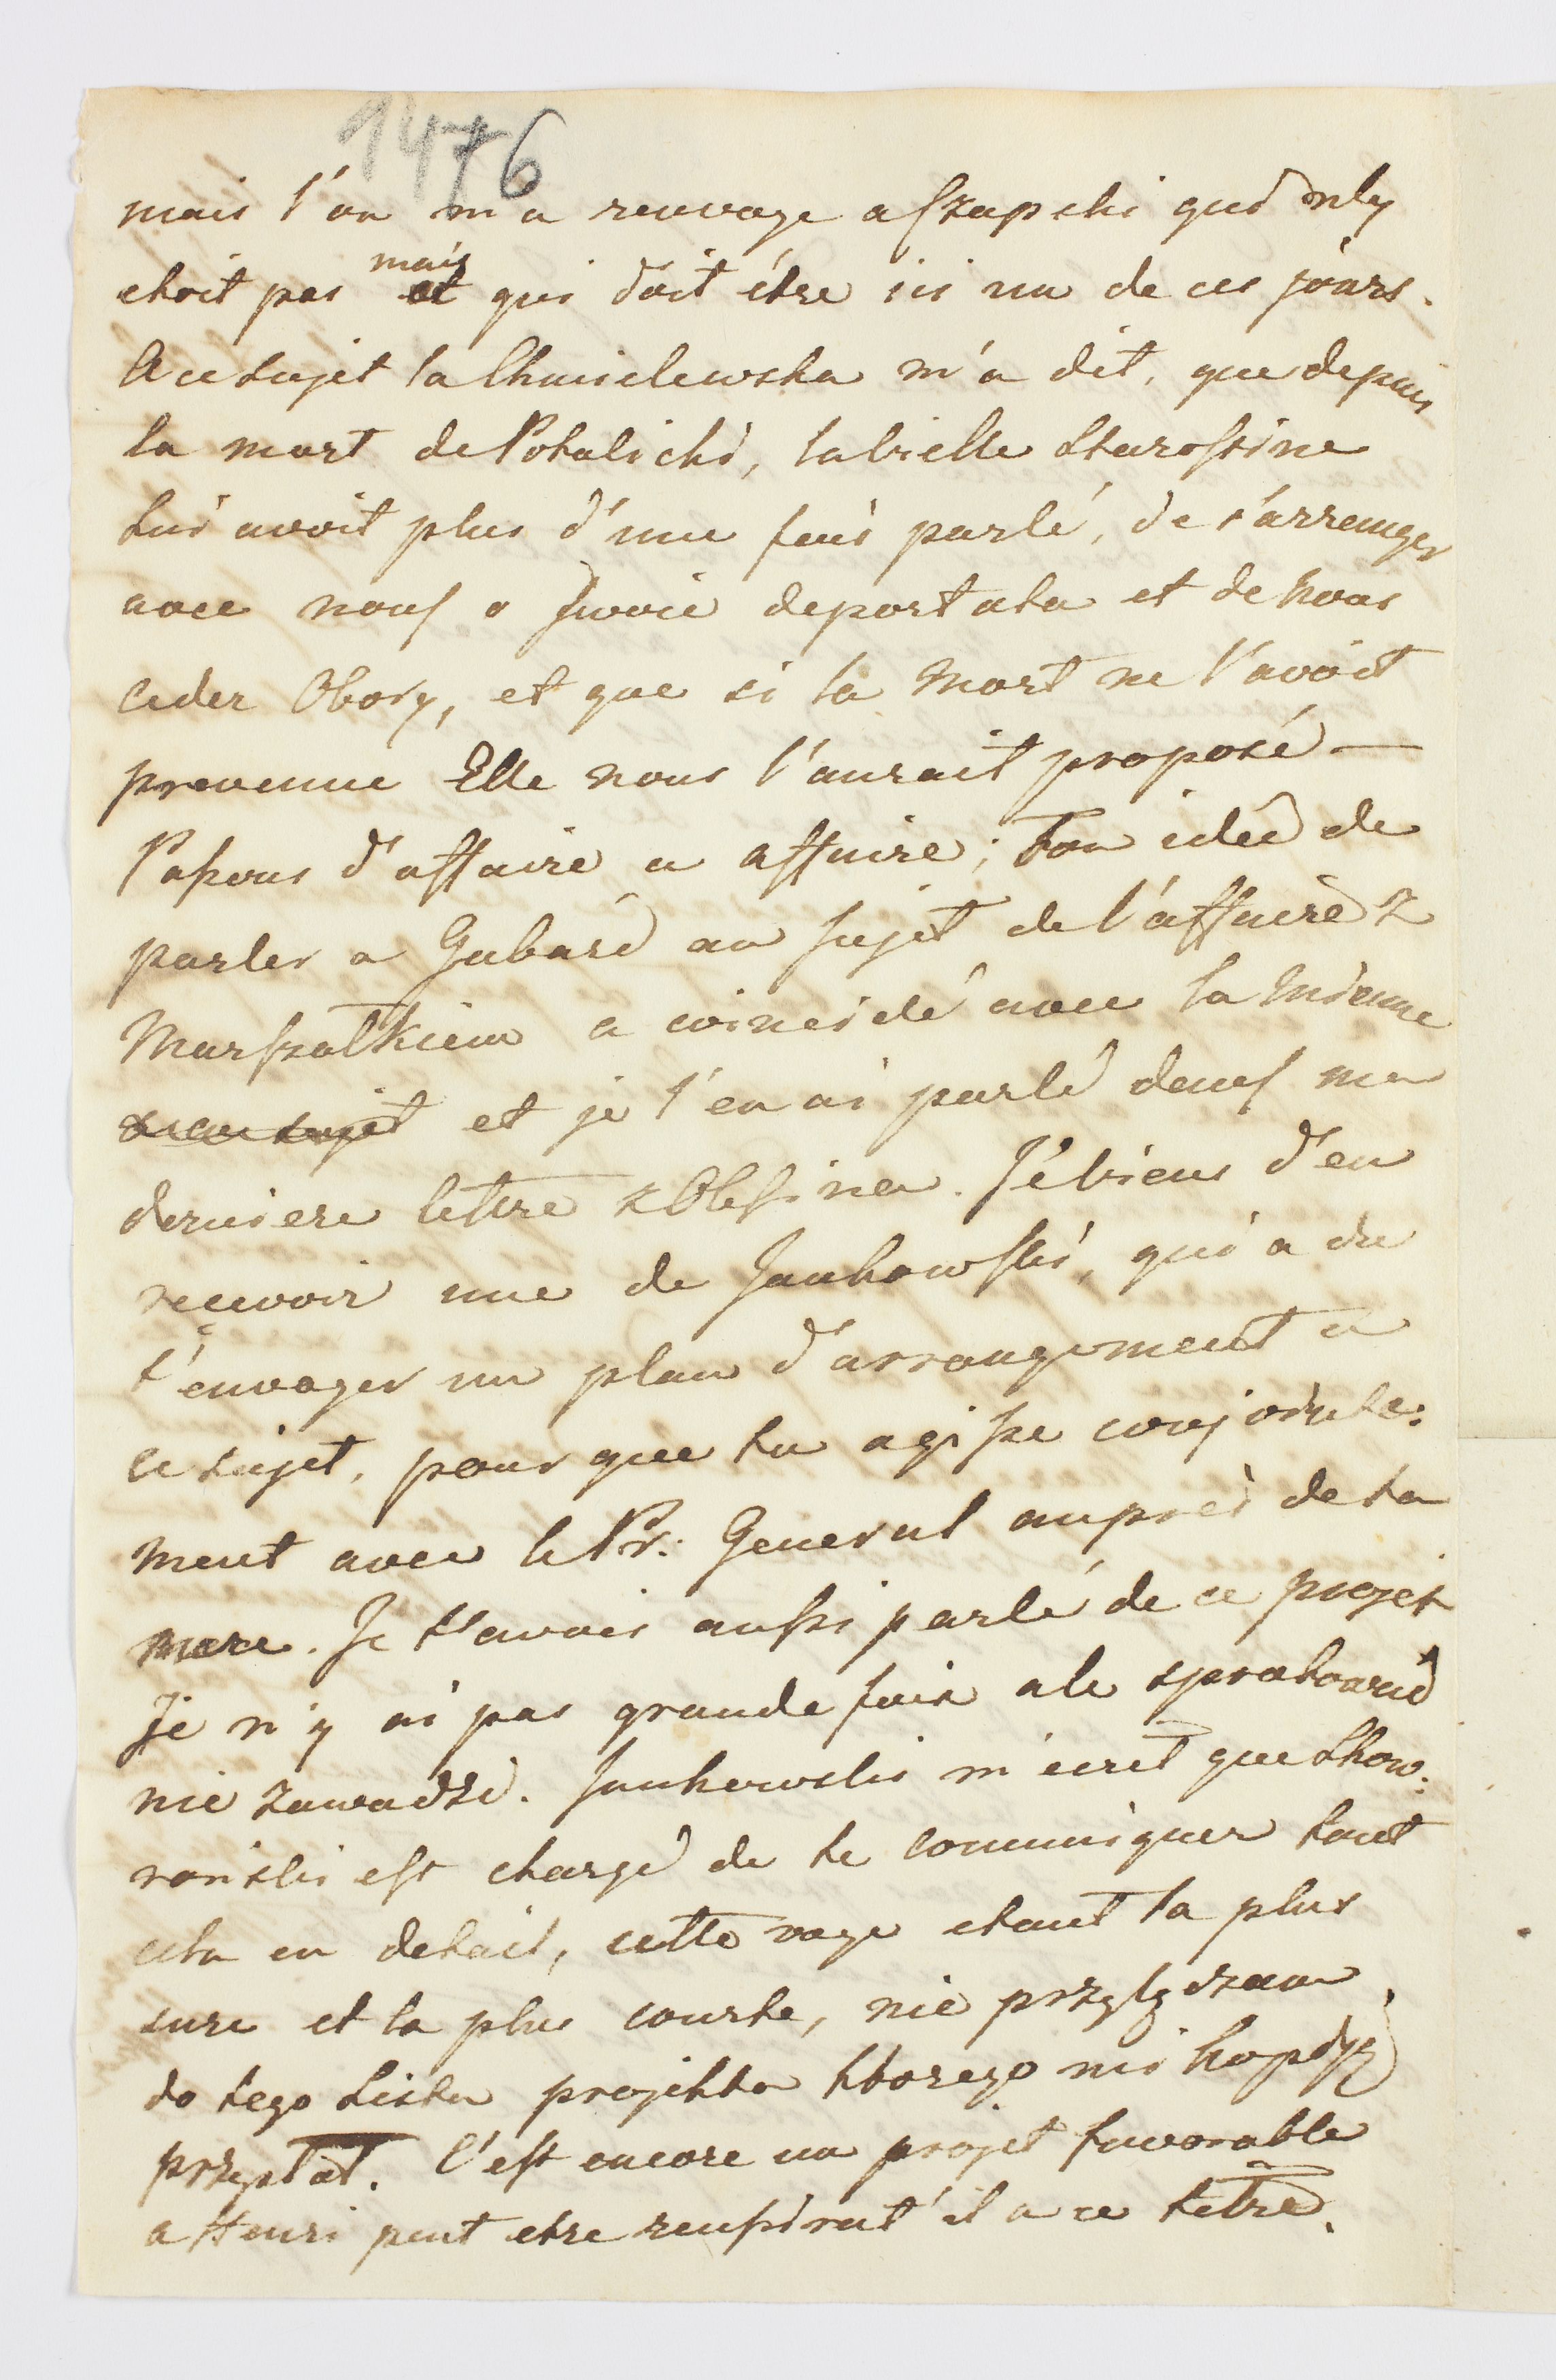 1476
mais l'on m'a renvoye a Szapski qui n'y
etoit pas mais qui doit étre ici un de ces jours.
A ce sujet la Chmielewska m'a dit, que depuis
la mort de Potulicki, la vielle Starostine
lui avoit plus d'une fois parlé, de s'arrenger
avec nous o Swoie deportata et de nous
ceder Obory, et que si la Mort ne l'avoit
prevenue Elle nous l'aurait proposé —
Passons d'affaire a affaire; Ton idée de
parler a Gubard au sujet de l'affaire z
Marszalkiem a coincidé avec la Mienne
et je t'en ai parlé dans ma
derniere lettre z Olesina. Je viens d'en
reçevoir une de Jankowski, qui a du
t'envoyer un plan d'arrangement a
ce sujet, pour que tu agisse conjointe:
ment avec le Pr: General auprès de ta
mere. Je t'avois aussi parlé de ce projet
Je n'y ai pas grande foix ale sprobowac
nie zawadzi. Jankowski m'ecrit que Skow:
ronski est chargé de te communiquer tout
cela en detail, cette voye etant la plus
sure et la plus courte, nie przylączam
do tego Listu projektu ktorego mi kopdyę
przysłał. C'est encore un projet favorable
a Henri peut etre reussirat'il a ce tetre.